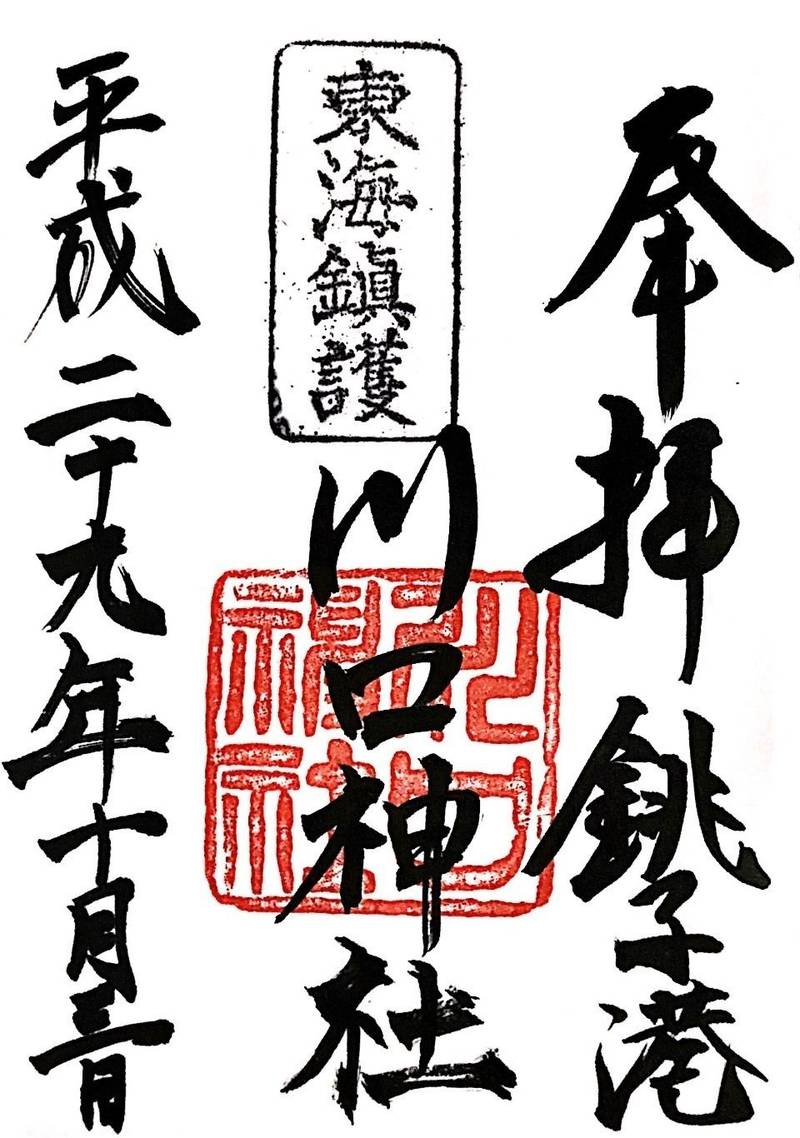 奉拝 銚子港
東海鎮護
川口神社
川口神社
平成二十九年十月三日